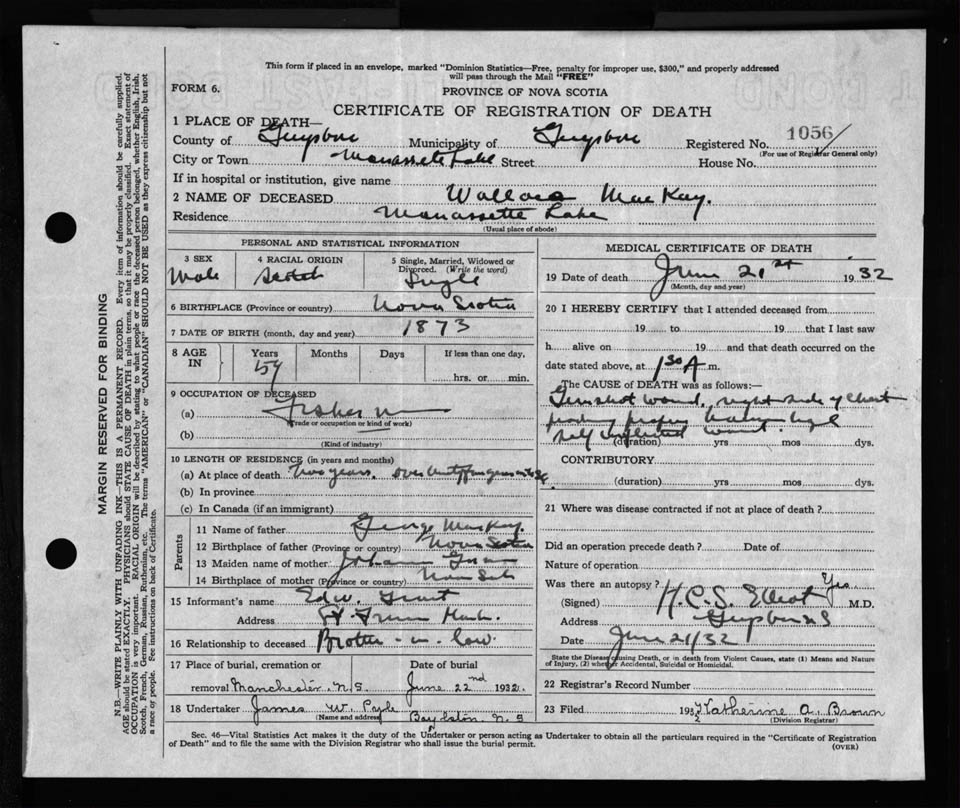 This form if placed in an envelope, marked "Dominion Statistics—Free, penalty for improper use, $300," and properly addressed
will pass through the Mail "FREE"
FORM 6.
PROVINCE OF NOVA SCOTIA
CERTIFICATE OF REGISTRATION OF DEATH
1 PLACE OF DEATH—
County of Guysboro Municipality of Guysboro Registered No. 1056
(For use of Registrar General only)
City or Town Manassette Lake Street House No.
If in hospital or institution, give name
2 NAME OF DECEASED Wallace MacKay.
Residence Manassette Lake
(Usual place of abode)
PERSONAL AND STATISTICAL INFORMATION
3 SEX 4 RACIAL ORIGIN 5 Single, Married, Widowed or
Divorced. (Write the word)
Male Scotch Single
6 BIRTHPLACE (Province or country) Nova Scotia
7 DATE OF BIRTH (month, day and year) 1873
8 AGE IN Years Months Days If less than one day,
59 hrs. or min.
9 OCCUPATION OF DECEASED
(a) Fisherman
(Trade or occupation or kind of work)
(b)
(Kind of industry)
10 LENGTH OF RESIDENCE (in years and months)
(a) At place of death Two years,
(b) In province
(c) In Canada (if an immigrant)
Parents
11 Name of father George MacKay
12 Birthplace of father (Province or country) Nova Scotia
13 Maiden name of mother
14 Birthplace of mother (Province or country) Nova Scotia
15 Informant's name Edw. Grant
Address
16 Relationship to deceased Brother-in-law
17 Place of burial, cremation or Date of burial
removal Manchester, N.S. June 22nd 1932.
18 Undertaker James W. Pyle
(Name and address) Boylston, N.S
MEDICAL CERTIFICATE OF DEATH
19 Date of death June 21st 1932
(Month, day and year)
20 I HEREBY CERTIFY that I attended deceased from
19 to 19 that I last saw
h alive on 19 and that death occurred on the
date stated above, at 1 30 A m.
The CAUSE OF DEATH was as follows:—
Gunshot wound, right side of chest
self inflicted wound.
(duration) yrs mos dys.
CONTRIBUTORY
(duration) yrs mos dys.
21 Where was disease contracted if not at place of death?
Did an operation precede death? Date of
Nature of operation
Was there an autopsy? Yes
(Signed) H.C.S. Elliot M.D.
Address Guysboro NS
Date June 21/32
State the Disease causing Death, or in death from Violent Causes, state (1) Means and Nature
of Injury, (2) whether Accidental, Suicidal or Homicidal.
22 Registrar's Record Number
23 Filed 193 2 Katherine A. Brown
(Division Registrar)
Sec. 46—Vital Statistics Act makes it the duty of the Undertaker or person acting as Undertaker to obtain all the particulars required in the "Certificate of Registration
of Death" and to file the same with the Division Registrar who shall issue the burial permit.
(OVER)
MARGIN RESERVED FOR BINDING
N.B.—WRITE PLAINLY WITH UNFADING INK—THIS IS A PERMANENT RECORD. Every item of information should be carefully supplied.
AGE should be stated EXACTLY. PHYSICIANS should STATE CAUSE OF DEATH in plain terms, so that it may be properly classified. Exact statement of
OCCUPATION is very important. RACIAL ORIGIN will be described by stating to what people or race the deceased person belonged, whether English, Irish,
Scotch, French, German, Russian, Ruthenian, etc. The terms "AMERICAN" or "CANADIAN" SHOULD NOT BE USED as they express citizenship but not
a race or people. See instructions on back of Certificate.